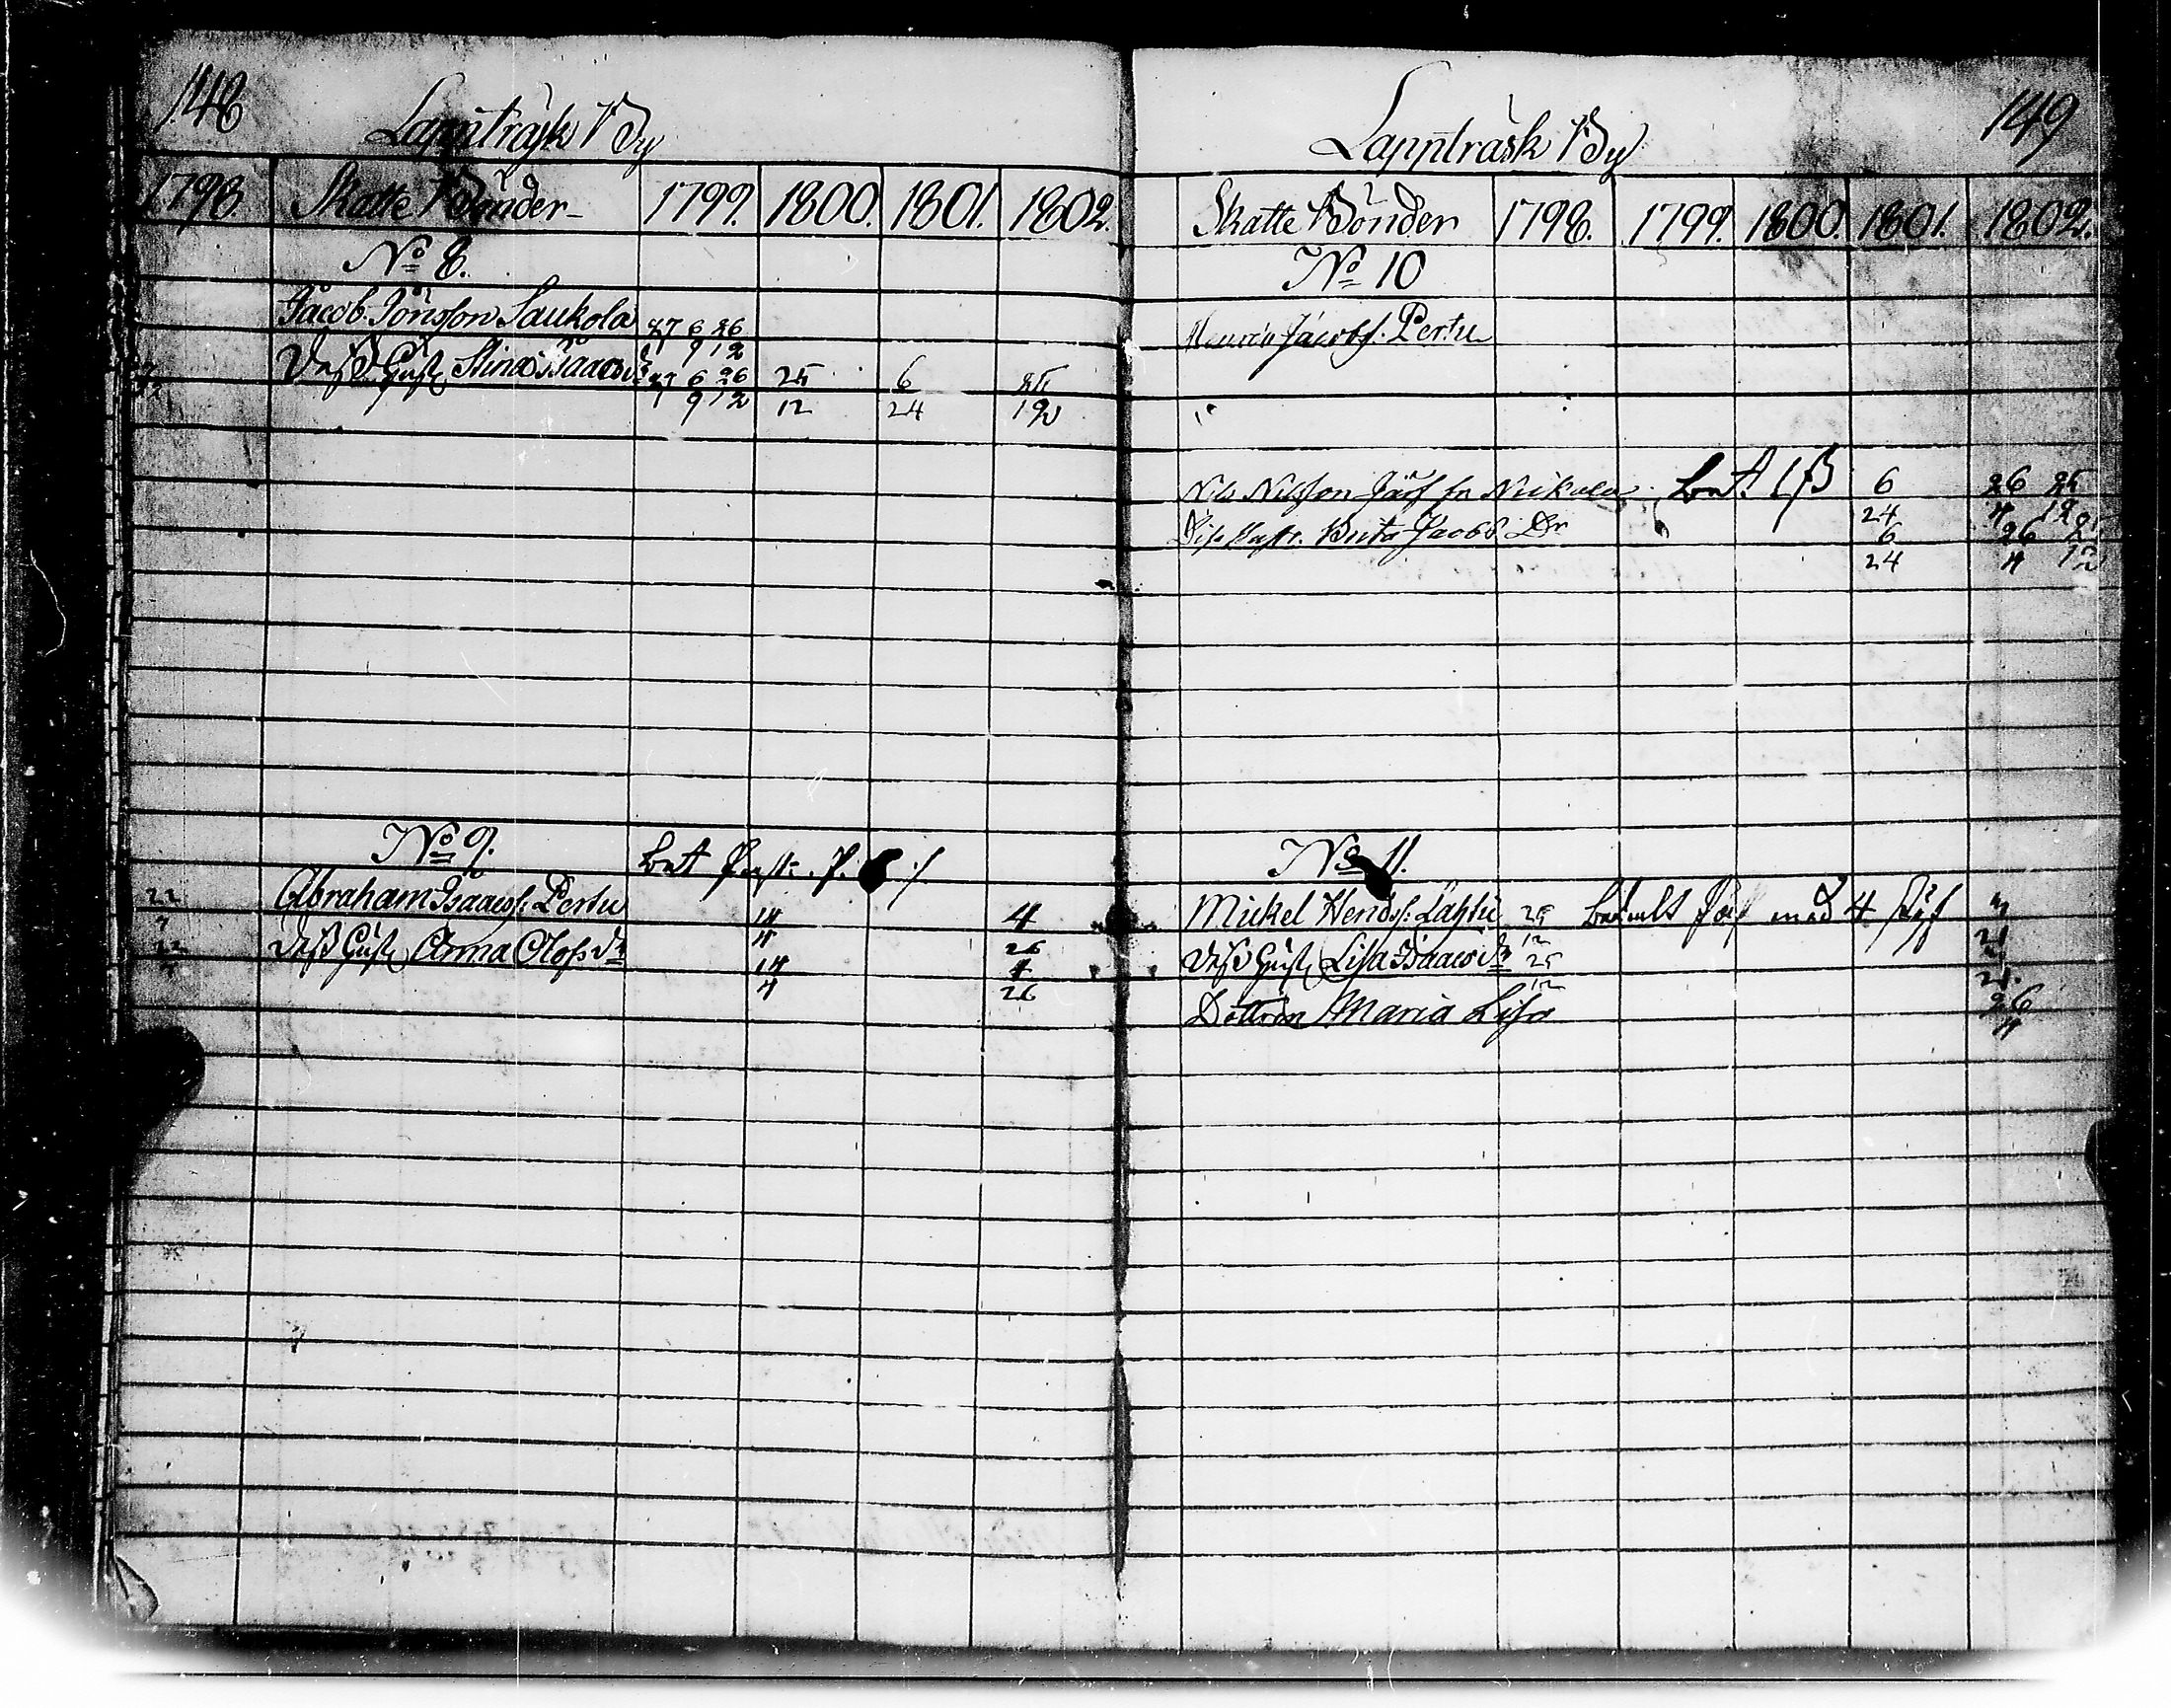 148
Lappträsk By
1798. Skatte Bönder 1799. 1800. 1801. 1802.
No 8.
Jacob Jönsson Laukola 27 6 26
1 9 12
Dess Hust Stina Isaacs dr 27 6 26 25 6 25
1 9 12 12 24 12
No 9.
22 Abraham Isaacs: Pertu 14 4
7 4 26
22 Dess Hust Anna Olofs dr 14 4
7 4 26
149
Lappträsk By
Skatte Bönder 1798. 1799. 1800. 1801. 1802.
No 10
Henric Jacobs: Pertu
Nils Nilsson 6 26 25
24 4 12
Brita Jacobs Dr 6 26 25
24 4 12
No 11.
Mickel Hends: Lahti 25 med 4
12 21
Dess Hust Lisa Isaacs dr 25
12 21
Dottren Maria Lisa 26
4